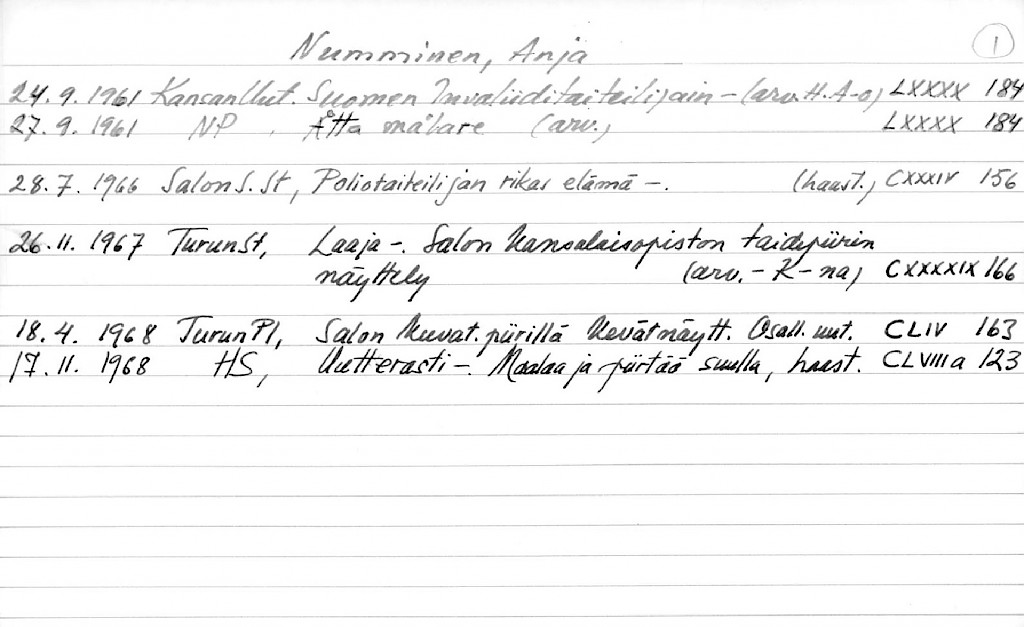 Numminen, Anja
1
24.9.1961 Kansan Uut. Suomen Invaliiditaiteilijain – (arv. H. A-o) LXXXX 184
27.9.1961 NP, Åtta målare (arv.) LXXXX 184
28.7.1966 Salon S. St, Poliotaiteilijan rikas elämä –. (haast.) CXXXIV 156
26.11.1967 Turun St, Laaja –. Salon Kansalaisopiston taidepiirin
näyttely (arv. – K – na) CXXXXIX 166
18.4. 1968 Turun Pl, Salon Kuvat. piirillä Kevätnäytt. Osall. uut. CLIV 163
17.11. 1968 HS, Uutterasti –. Maalaa ja piirtää suulla, haast. CLVIIIa 123